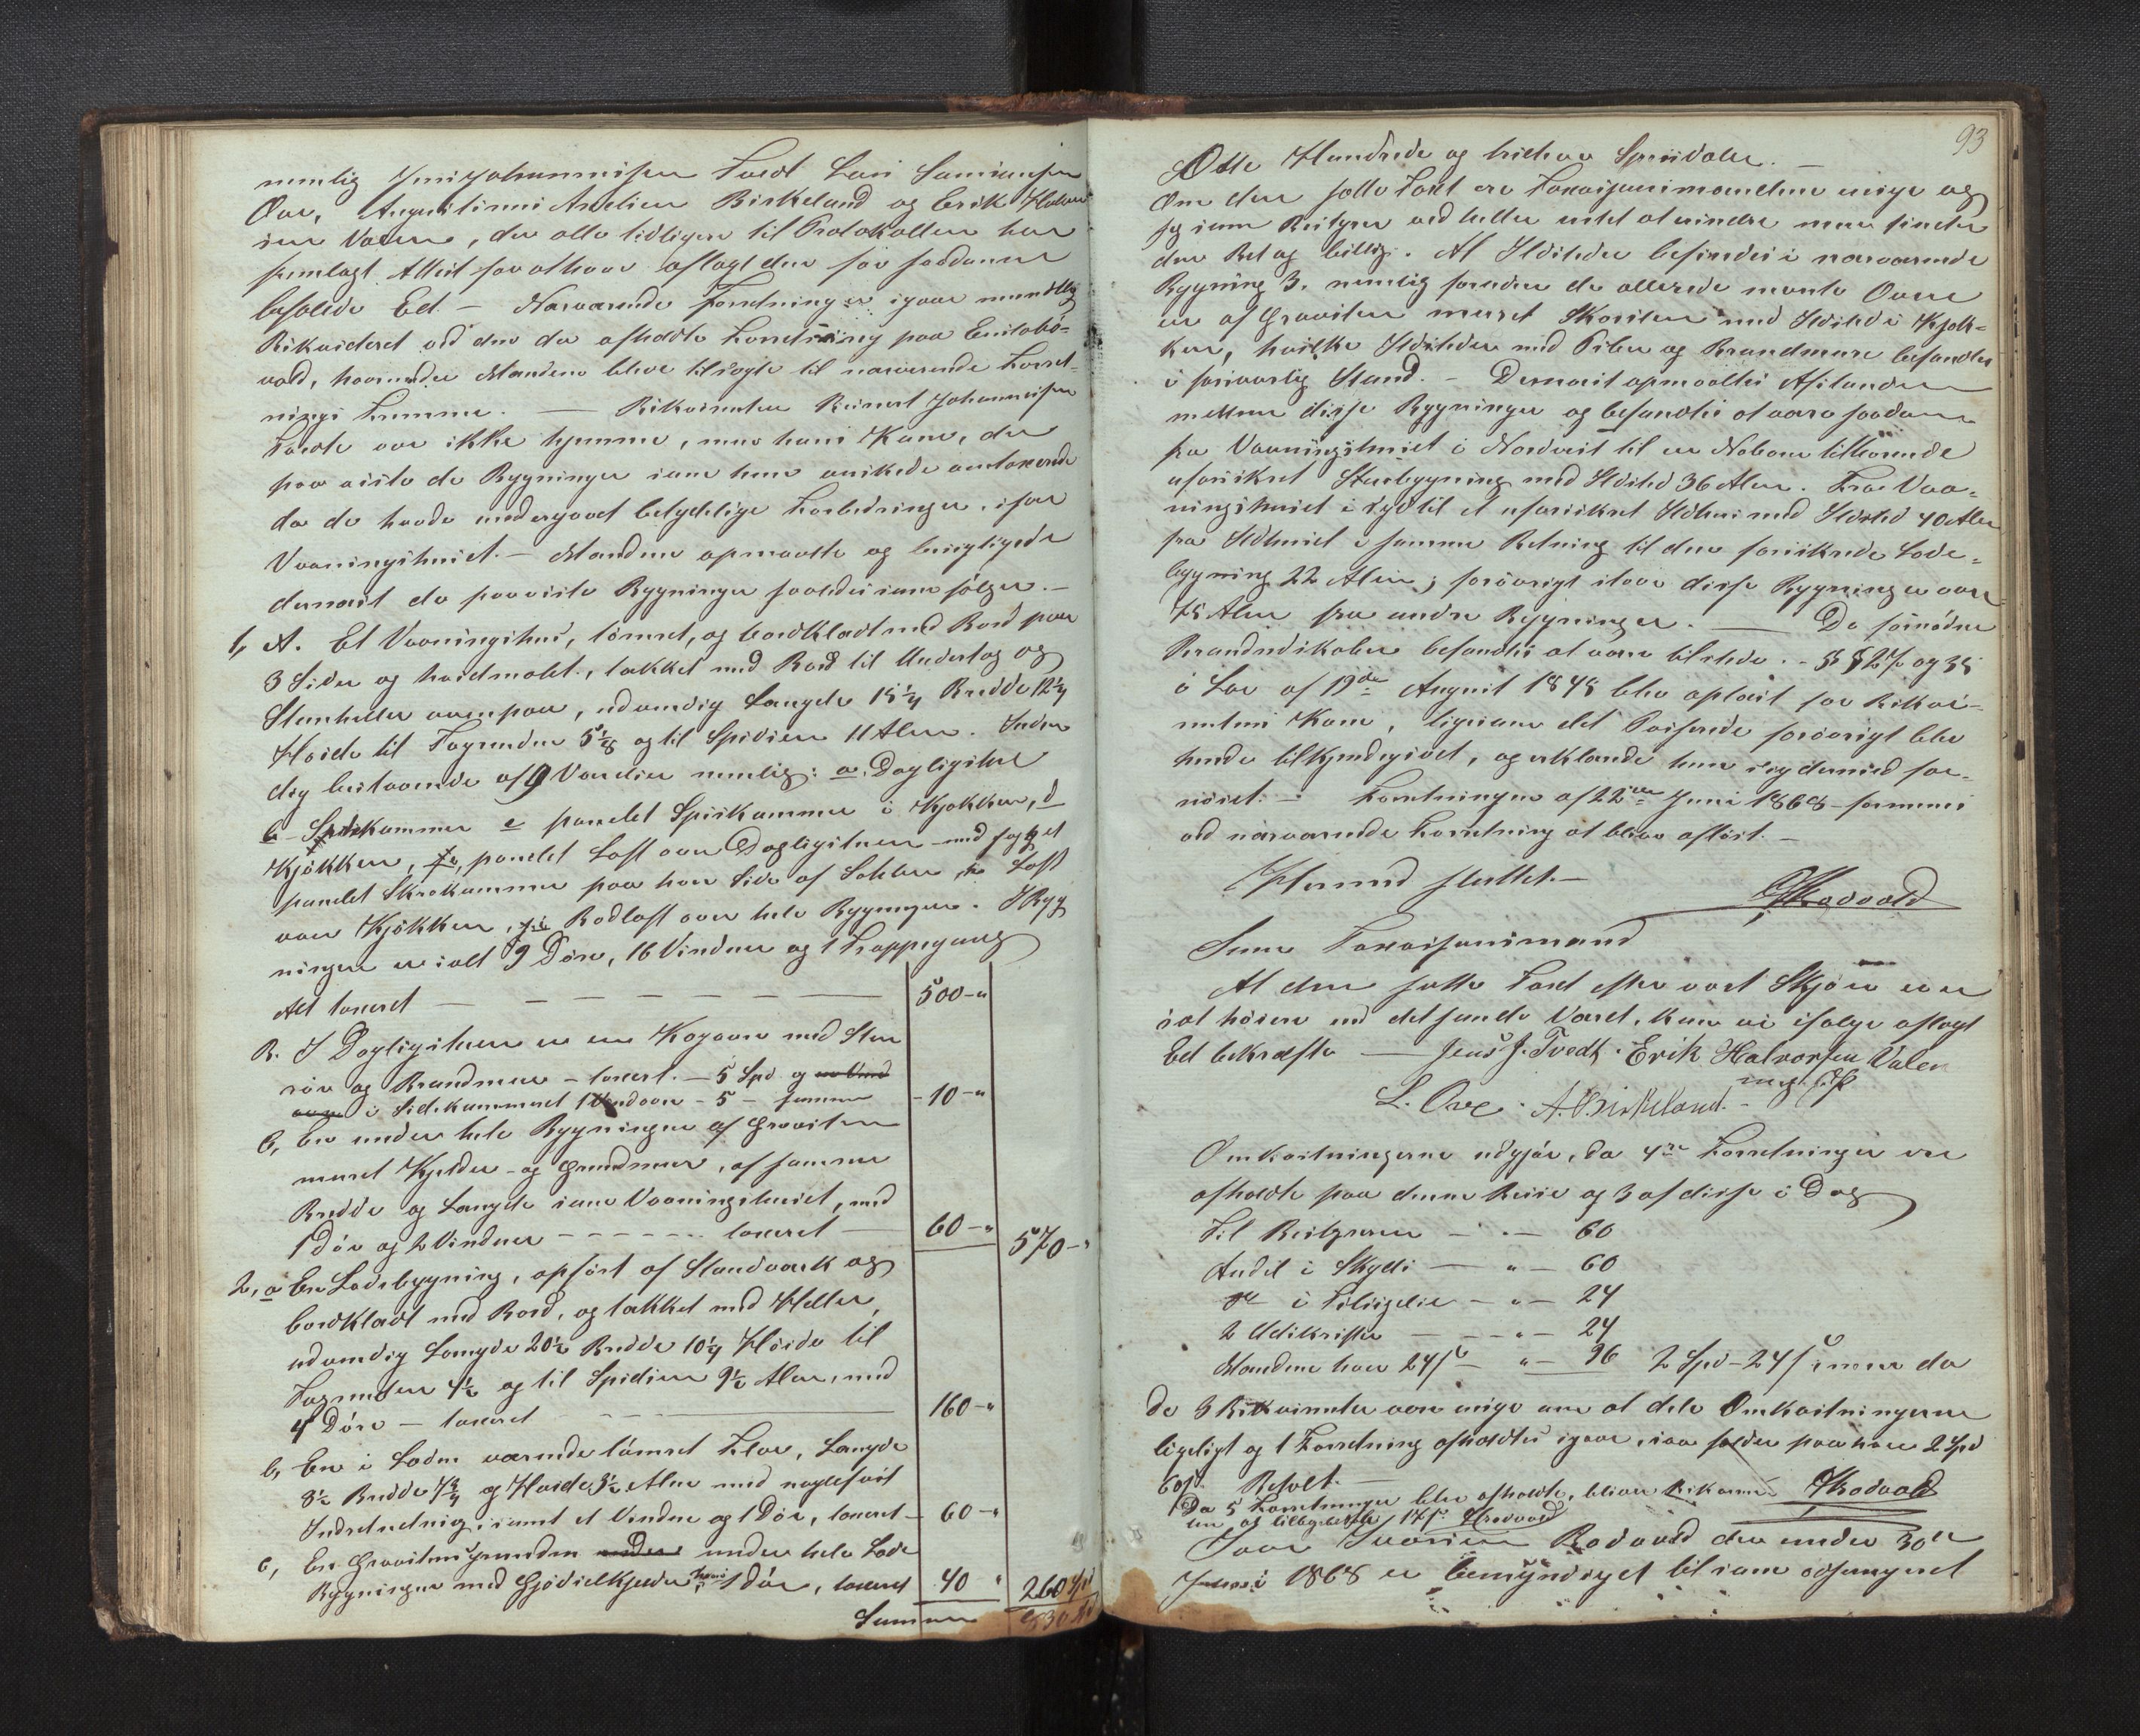 nemlig Jens Johannessen Tvedt Lars Larsen
Ove, Augustinus Andreas Birkeland og Erik Halvor-
sen Valen, der alle tidligere til Protokollen har
fremlagt Attest for at have aflagt den for saadanne
befalede Ed. – Nærværende Forretning er igaar mundtlig
Rekvireret ved den da afholdte Forretning paa
vold, hvorunder Mændene bleve tilsagte til nærværende Forret-
nings Fremme. — Rekvirenten Reinert Johannessen
Tvedte var ikke hjemme, men hans Kone, der
paaviste de Bygninger som hun ønskede omtaxerede
da de havde undergaaet betydelige Forbedringer, især
Vaaningshuset. – Mændene opmaalte og besigtigede
dernæst de paaviste Bygninger saaledes som følger. –
1, A. Et Vaaningshus, tømret, og bordklædt med Bord paa
3 Sider og hvidmalet, tækket med Bord til Undertag og
Steenheller ovenpaa, udvendig Længde 15¼ Bredde 12¼
Høide til Tagrenden 5⅛ og til Spidsen 11 Alen. Indven
dig bestaaende af 9 Værelser nemlig: a. Dagligstue
b Sidekammer c panelet Spiskammer i Kjøkken, d
Kjøkken, panelet Loft over Dagligstuen med
panelet Skrakammer paa hver Side af Salen, Loft
over Kjøkken, Rodloft over hele Bygningen. I Byg
ningen er ialt 9 Døre, 16 Vinduer og 1 Trappegang
Alt taxeret — — — — — — — 500 – "
B. I Dagligstuen er en Kogeovn med Steen
rør og Brandmuur – taxeret. – 5 Spd og
i Sidekammeret 1 Vindovn – 5 – sammen – 10 – "
C, En under hele Bygningen af Graasteen
muret Kjelder- og Grundmuur, af samme
Bredde og Længde som Vaaningshuset, med
1 Dør og 2 Vinduer – – – – – – taxeret – 60 – " 570 – "
2, a En Ladebygning, opført af Standværk og
bordklædt med Bord, og tækket med Heller,
udvendig Længde 20½ Bredde 10¼ Høide til
Tagrenden 4½ og til Spidsen 9½ Alen, med
4 Døre – taxeret – – – 160 – "
b, En i Laden værende tømret Floer, Længde
8½ Bredde 7¾ og Høide 3½ Alen med nagelfast
Indretning, samt et Vindue og 1 Dør, taxeret – 60 – "
c, En Graasteensgrundmur under hele Lade
Bygningen med Gjødselkjelder, 1 Dør, taxeret 40 " 260 Spd
Summa 830 Spd
93
Otte Hundrede og tredive Speciedaler. –
Om den satte Taxt ere Taxationsmændene enige og
jeg som Bestyrer ved heller intet at erindre men finder
den Ret og billig. Af Ildsteder befindes i nærværende
Bygning 3, nemlig foruden de allerede nævnte Ovne
en af Graasteen muret Skorsteen med Ildsted i Kjøk-
ken, hvilke Ildsteder med Piber og Brandmure befandtes
i forsvarlig Stand. – Dernæst opmaaltes Afstanden
mellem disse Bygninger og befandtes at være saadan
fra Vaaningshuset i Nordvest til en Naboen tilhørende
uforsikret Stuebygning med Ildsted 36 Alen. Fra Vaa-
ningshuset i Syd til et uforsikret Ildhus med Ildsted 40 Alen
fra Ildhuset i samme Retning til den forsikrede Lade-
bygning 22 Alen; forøvrigt staae disse Bygninger over
75 Alen fra andre Bygninger. — De fornødne
Brandredskaber befandtes at være tilstede. – §§ 27 og 35
i Lov af 19de August 1845 blev oplæst for Rekvi-
rentens Kone, ligesom det Passerede forøvrigt blev
hende tilkjendegivet, og erklærede hun sig dermed for-
nøiet. – Forretningen af 22de Juni 1868 formenes
ved nærværende Forretning at blive afløst. –
Hermed sluttet. –
Rodvold
Som Taxationsmænd
At den satte Taxt efter vort Skjøn ei er
sat høiere end det sande Værd, kan vi ifølge aflagt
Ed bekræfte — Jens J. Tvedt. Erik Halvorsen Valen
m. f. P.
L. Ove. A. Birkeland. –
Omkostningerne udgjør, da 4re Forretninger ere
afholdte paa denne Reise og 3 af disse i Dag
Til Bestyreren – – – 60
Andel i Skyds — " – 60
do i Tilsigelse – " – 24
2 Udskrifter — – – " – 24
Mændene hver 24 s – " – 96 2 Spd – 24 s, men da
de 3 Rekvirenter vare enige om at dele Omkostningerne
ligeligt og 1 Forretning afholdtes igaar, saa falder paa hver 2 Spd
60 s. Betalt. –
Da 5 Forretninger blev afholdte, bliver
17 s. Rodvold
Rodvold
Aar Rodvold der under 30te
Juni 1868 er bemyndiget til som edsvoren